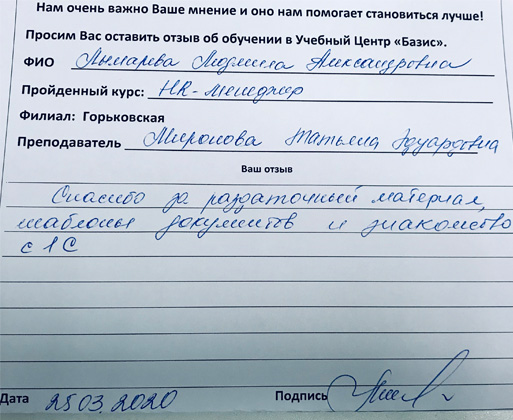 Нам очень важно Ваше мнение и оно нам помогает становиться лучше!
Просим Вас оставить отзыв об обучении в Учебный Центр «Базис».
ФИО Лымарева Людмила Александровна
Пройденный курс: HR-менеджер
Филиал: Горьковская
Преподаватель Миронова Татьяна Эдуардовна
Ваш отзыв
Спасибо за раздаточный материал,
шаблоны документов и знакомство
с 1С
Дата 25.03.2020 Подпись